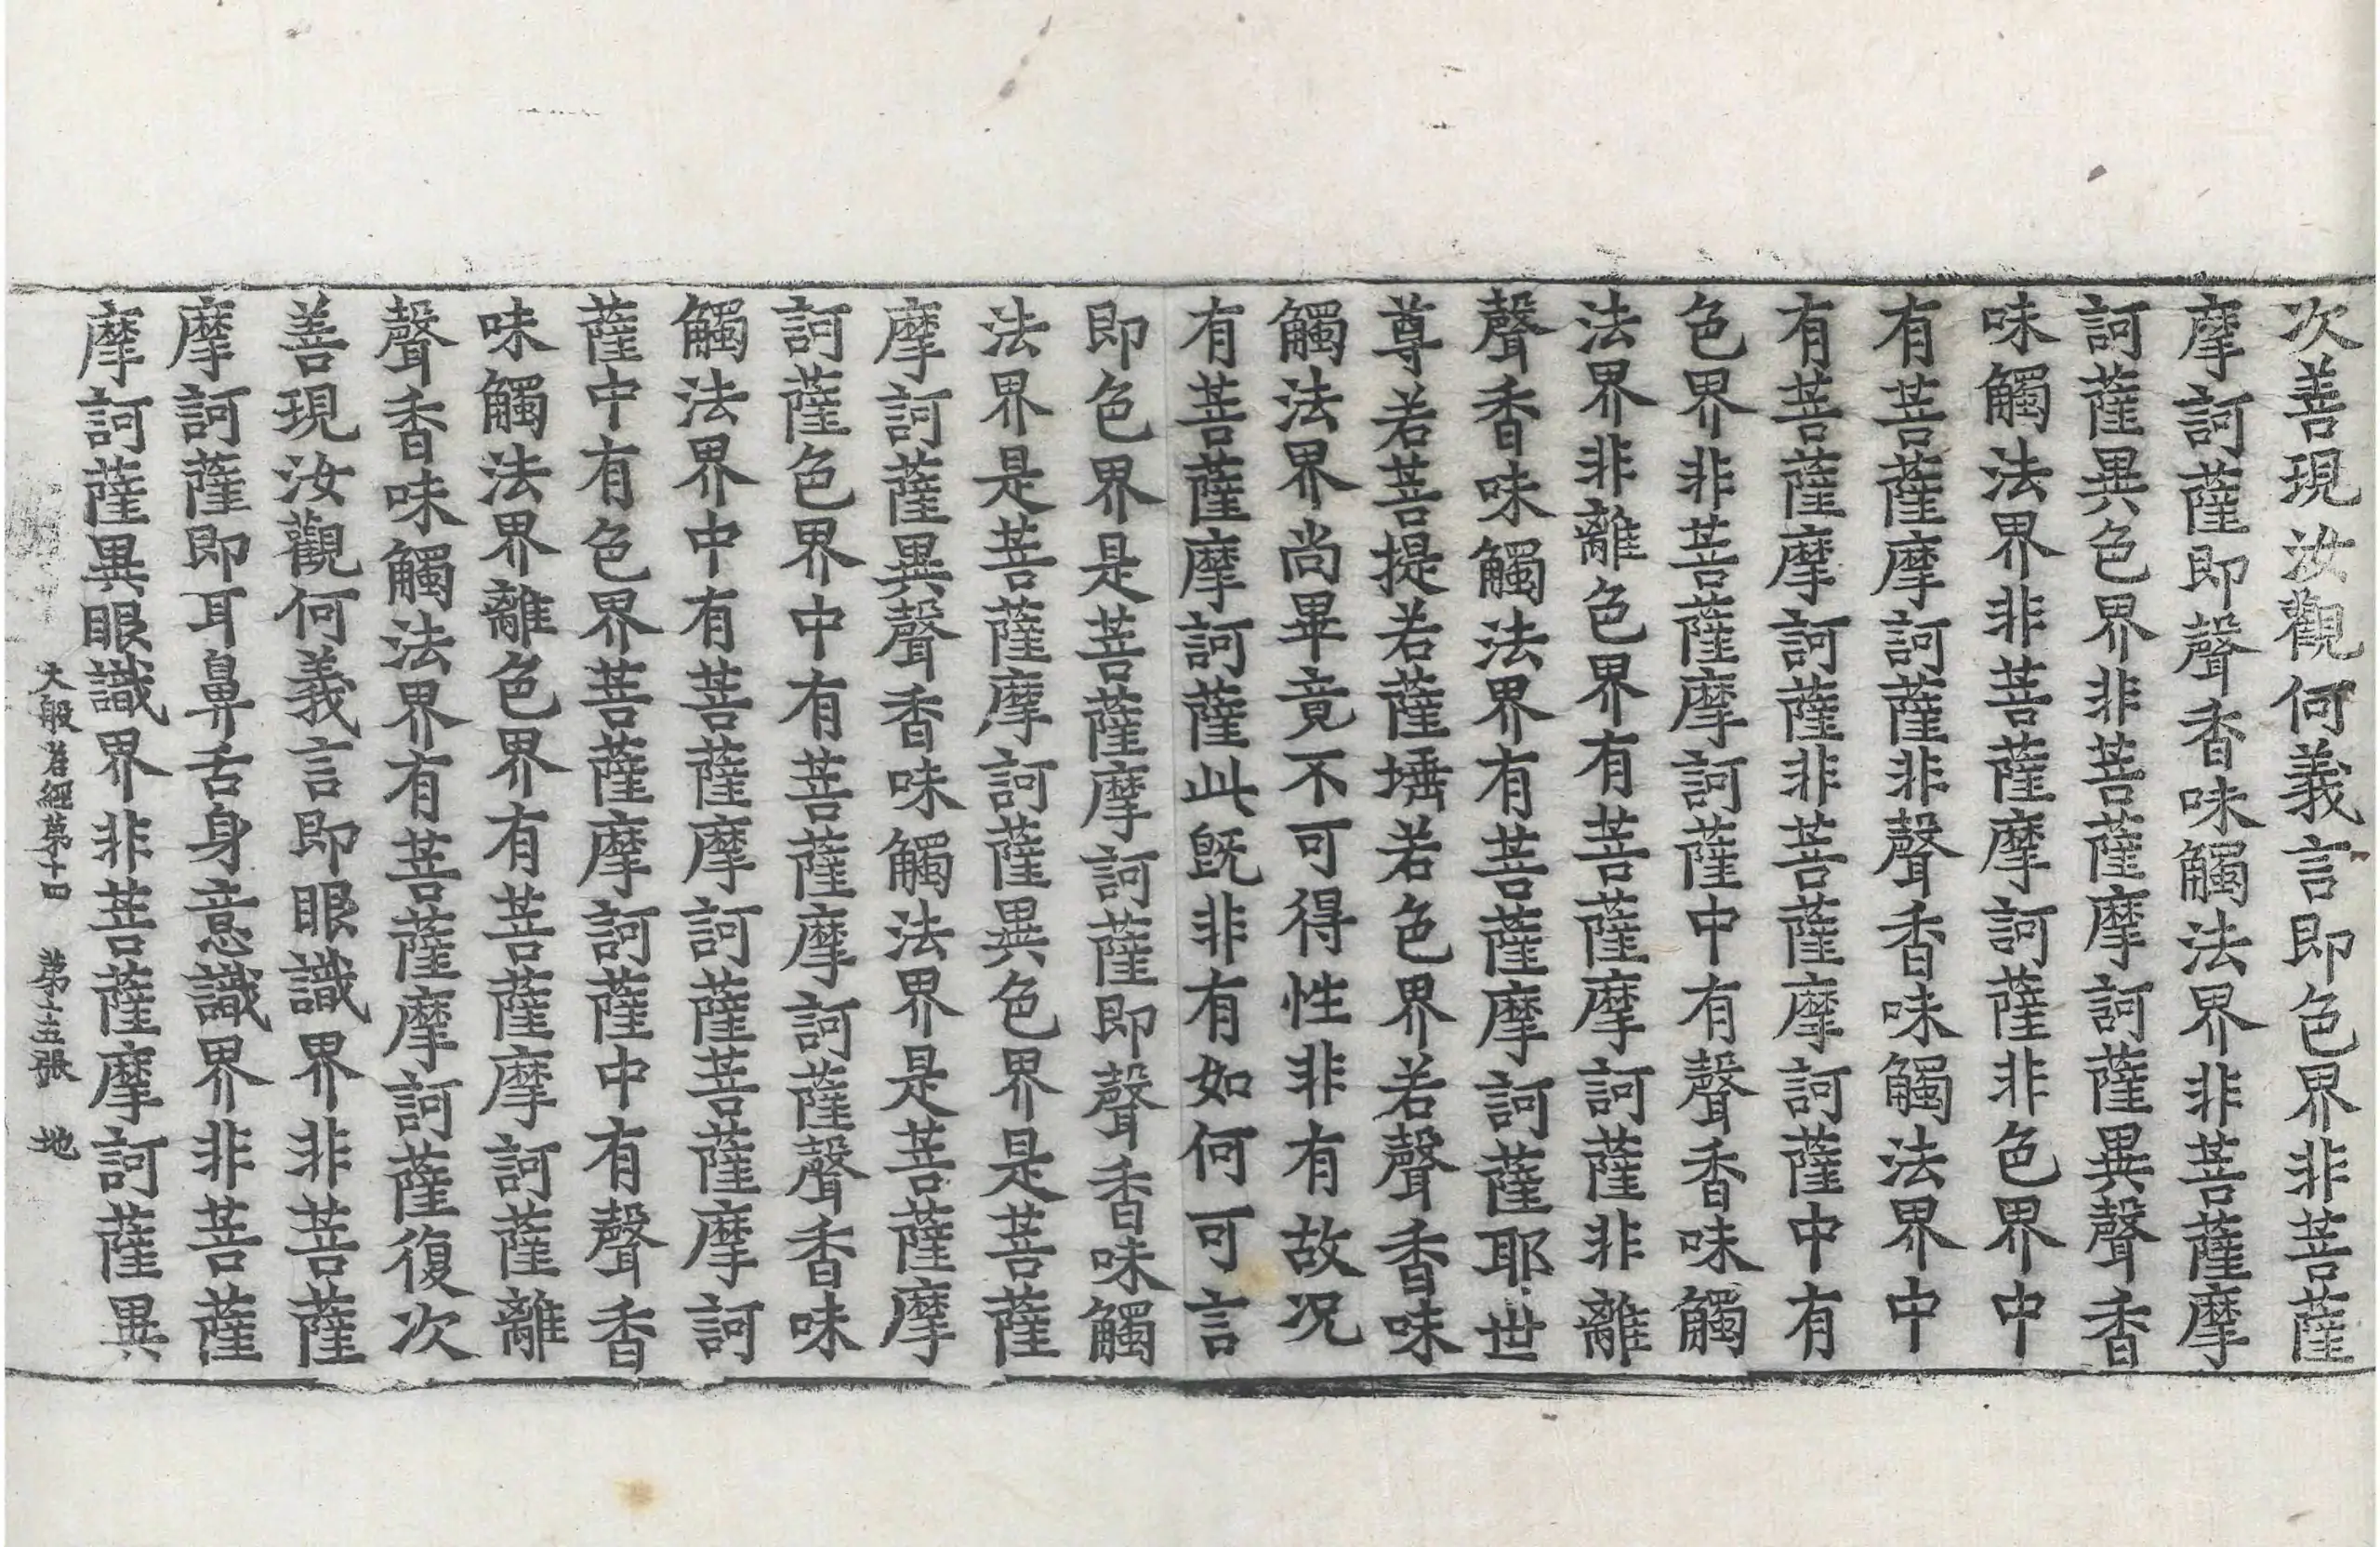 次善現汝觀何義言即色界非菩薩
摩訶薩即聲香味觸法界非菩薩摩
訶薩異色界非菩薩摩訶薩異聲香
味觸法界非菩薩摩訶薩非色界中
有菩薩摩訶薩非聲香味觸法界中
有菩薩摩訶薩非菩薩摩訶薩中有
色界非菩薩摩訶薩中有聲香味觸
法界非離色界有菩薩摩訶薩非離
聲香味觸法界有菩薩摩訶薩耶世
尊若菩提若薩埵若色界若聲香味
觸法界尚畢竟不可得性非有故况
有菩薩摩訶薩此旣非有如何可言
即色界是菩薩摩訶薩即聲香味觸
法界是菩薩摩訶薩異色界是菩薩
摩訶薩異聲香味觸法界是菩薩摩
訶薩色界中有菩薩摩訶薩聲香味
觸法界中有菩薩摩訶薩菩薩摩訶
薩中有色界菩薩摩訶薩中有聲香
味觸法界離色界有菩薩摩訶薩離
聲香味觸法界有菩薩摩訶薩復次
善現汝觀何義言即眼識界非菩薩
摩訶薩即耳鼻舌身意識界非菩薩
摩訶薩異眼識界非菩薩摩訶薩異
大般若經第十四 第十五張 地